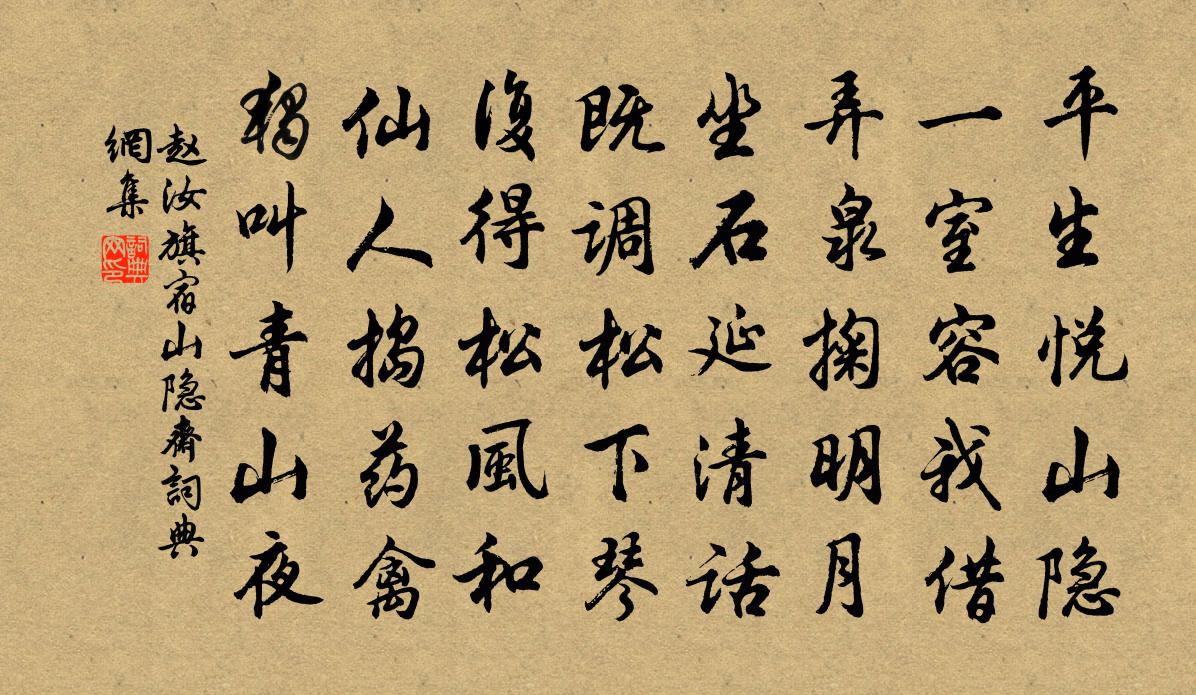 平生悦山隐
一室容我借
弄泉掬明月
坐石延清话
既调松下琴
復得松風和
仙人搗药禽
獨叫青山夜
赵汝旗宿山隐齋詞典
網集
詞典
网印